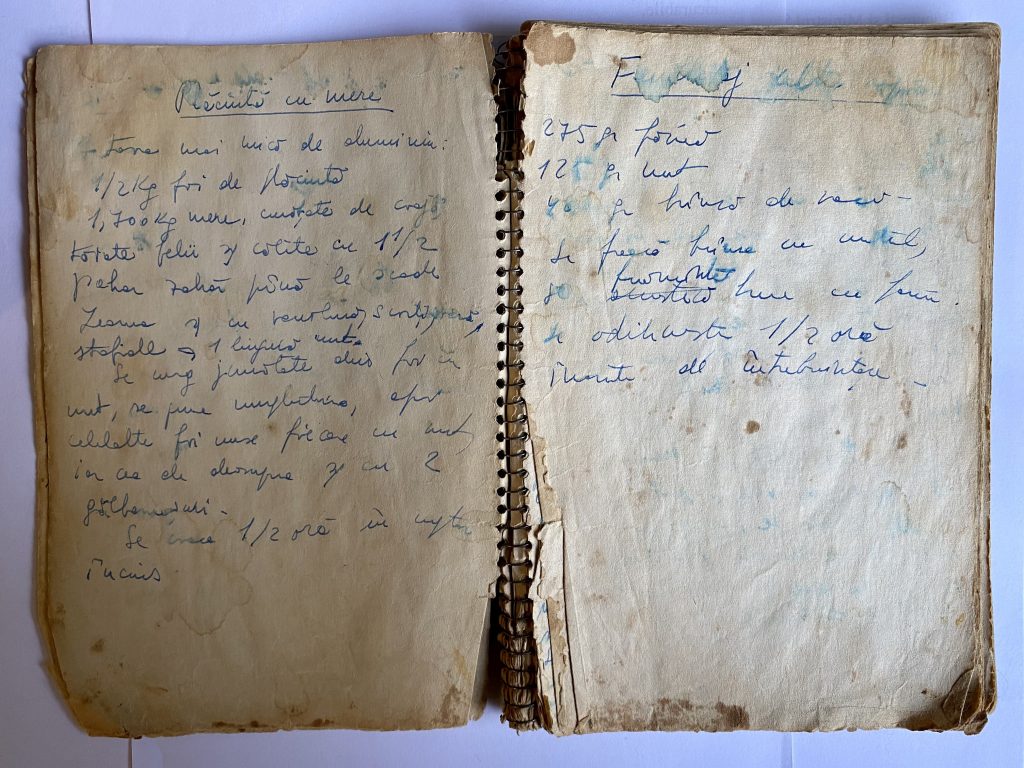 Plăcintă cu mere
tava mai mică de aluminiu:
1/2 Kg foi de plăcintă
1,700 Kg mere, curățate de coajă
tăiate felii și călite cu 1 1/2
pahar zahăr până le scade
zeama și cu
stafide 1 lingură unt
Se ung jumătate din foi cu
unt, se pune umplutura, apoi
celelalte foi unse fiecare cu unt,
iar cea de deasupra și cu 2
gălbenușuri.
Se coace 1/2 oră în
încins.
275 gr făină
125 gr unt
gr brînză de vaci
Se freacă brînza cu untul,
se frămîntă bine cu făină.
se odihnește 1/2 oră
înainte de întrebuințare